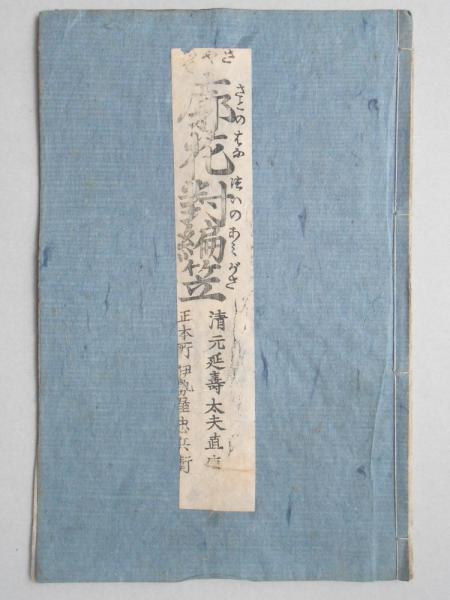 さや
廓花對編笠
さとのはな つゐのあみがさ
清元延壽太夫直
正本所 伊勢屋忠兵衛